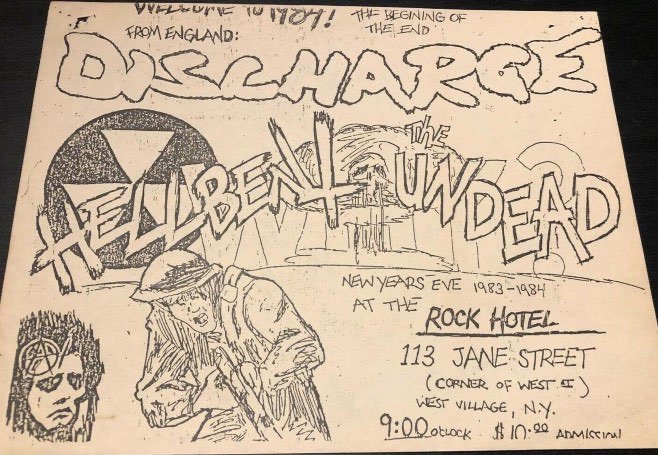 WELCOME TO 1984!
THE BEGINING OF
THE END
FROM ENGLAND:
DISCHARGE
HELLBENT
THE
UNDEAD
NEW YEARS EVE 1983-1984
AT THE
ROCK HOTEL
113 JANE STREET
(CORNER OF WEST ST)
WEST VILLAGE, N.Y.
9:00 O'CLOCK $10.00 ADMISSION